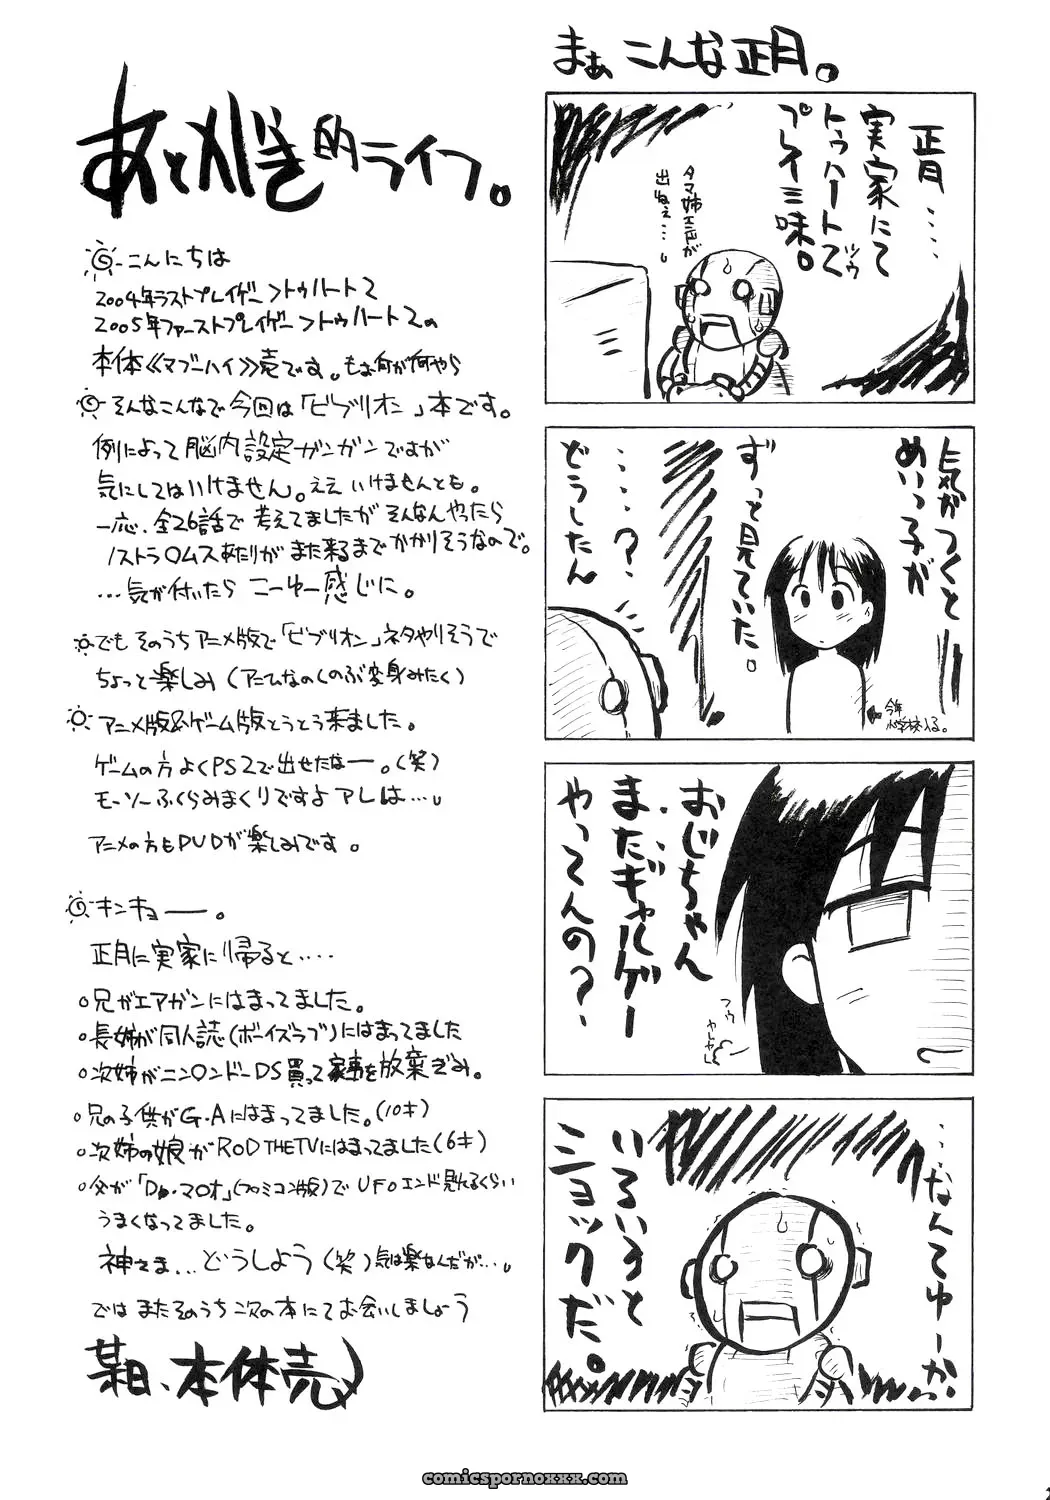 まぁ こんな正月。
正月‥‥
実家にて
トゥハート2
ツウ
プレイ三昧。
タマ姉エンドが
出ねぇ‥‥。
気がつくと
めいっ子が
ずっと見ていた。
‥‥‥?
どうしたん
今年
小学校入る。
おじちゃん
またギャルゲー
やってんの?
フゥ
ヤレヤレ
‥なんてゆーか
いろいろと
ショックだ。
あとがき的ライフ。
こんにちは
2004年ラストプレイゲー>トゥハート2
2005年ファーストプレイゲー>トゥハート2の
本体《マブーハイ》売です。もぉ何が何やら
そんなこんなで今回は「ビブリオン」本です。
例によって脳内設定ガンガンですが
気にしてはいけません。ええ いけませんとも。
一応、全26話で考えてましたがそんなんやったら
ノストラ○ムスあたりがまた来るまでかかりそうなので。
…気が付いたら こーゆー感じに。
でも そのうちアニメ版で「ビブリオン」ネタやりそうで
ちょっと楽しみ(アニムなのくのぶ変身みたく)
アニメ版&ゲーム版とうとう来ました。
ゲームの方よくPS2で出せたなー。(笑)
モーソーふくらみまくりですよアレは…。
アニメの方もDVDが楽しみです。
キンキョー。
正月に実家に帰ると‥‥
○兄がエアガンにはまってました。
○長姉が同人誌(ボーイズラブ)にはまってました
○次姉がニン○ンドーDS買って家事を放棄ぎみ。
○兄の子供がG・Aにはまってました。(10才)
○次姉の娘がROD THE TVにはまってました(6才)
○父が「Dr.マ○オ」(ファミコン版)でUFOエンド見れるくらい
うまくなってました。
神さま…どうしよう(笑)気は楽なんだが…。
では またそのうち次の本にてお会いしましょう
某日、本体売
comicspornoxxx.com